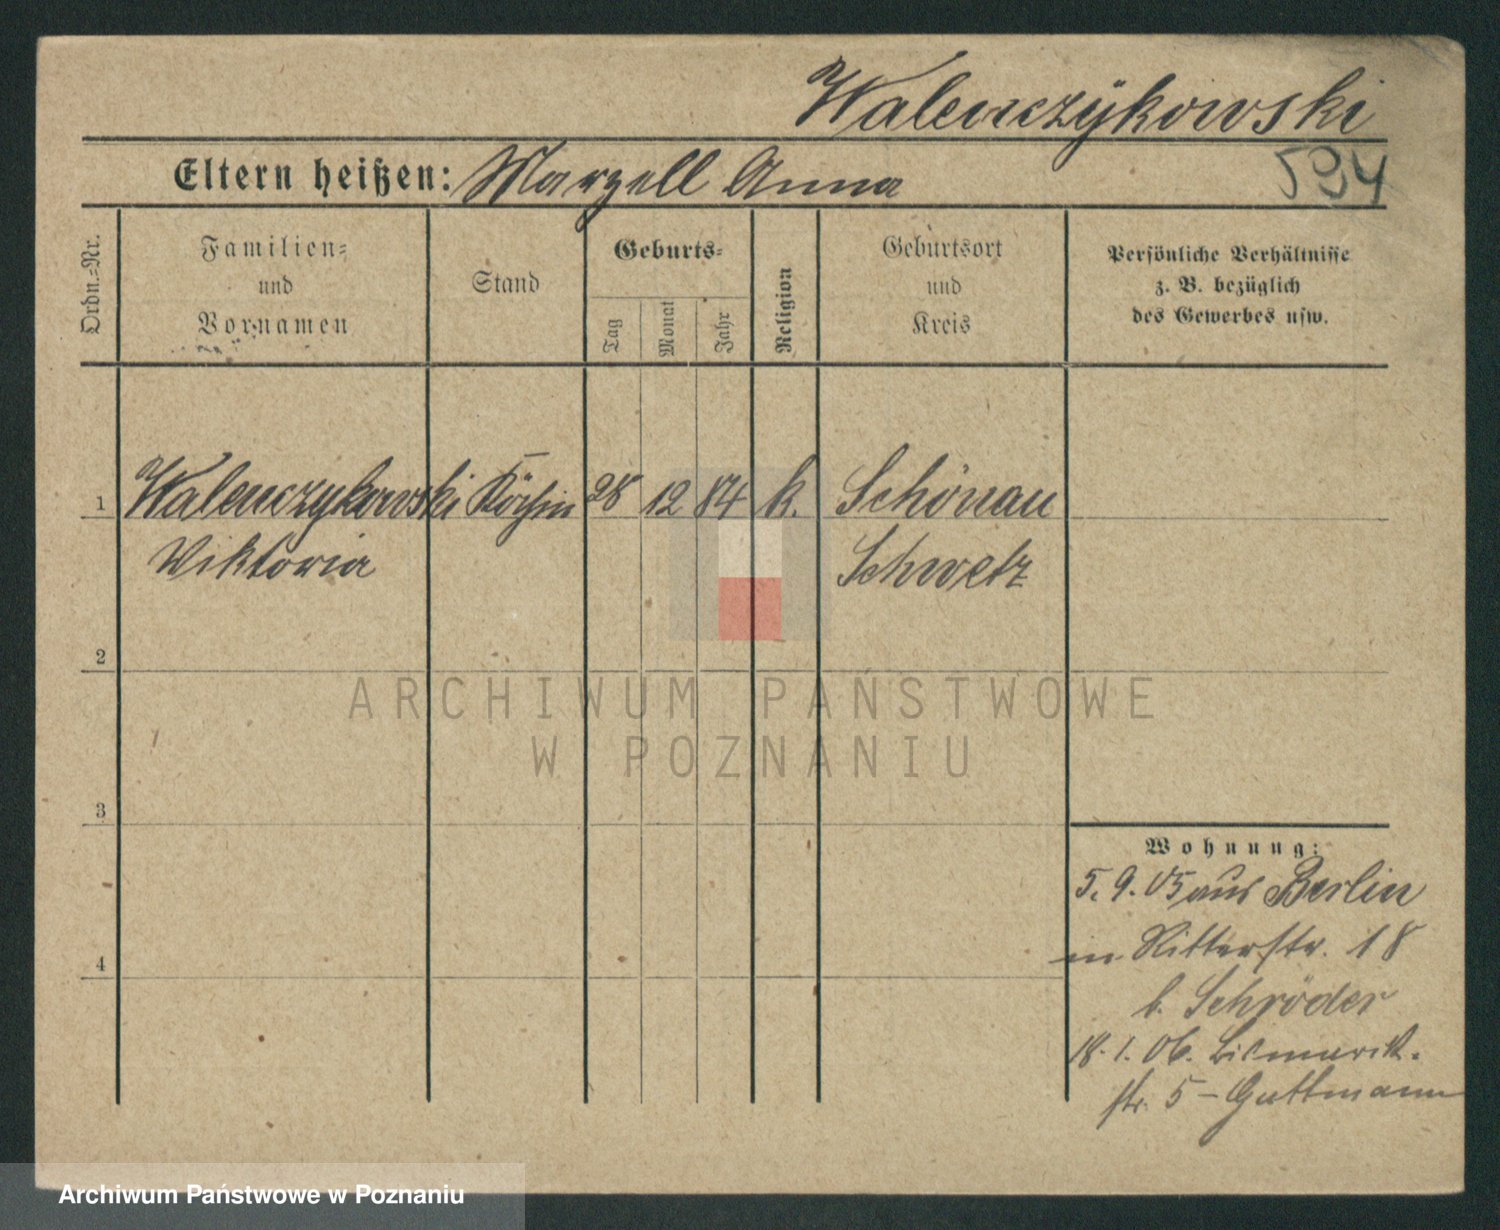 Walenczÿkowski
Eltern heißen: Marzell Anna
534
Ordn.=Nr.
Familien=
und
Vornamen
Stand
Geburts=
Tag
Monat
Jahr
Religion
Geburtsort
und
Kreis
Persönliche Verhältnisse
z. B. bezüglich
des Gewerbes usw.
1 Walenczykowski Köchin 28 12 84 k. Schönau
Viktoria Schwetz
2
3
4
Wohnung:
5. 9. 05 aus Berlin
in Ritterstr. 18
b. Schröder
18. 1. 06. Bismarck-
str. 5 – Guttmann
ARCHIWUM PAŃSTWOWE
W POZNANIU
Archiwum Państwowe w Poznaniu